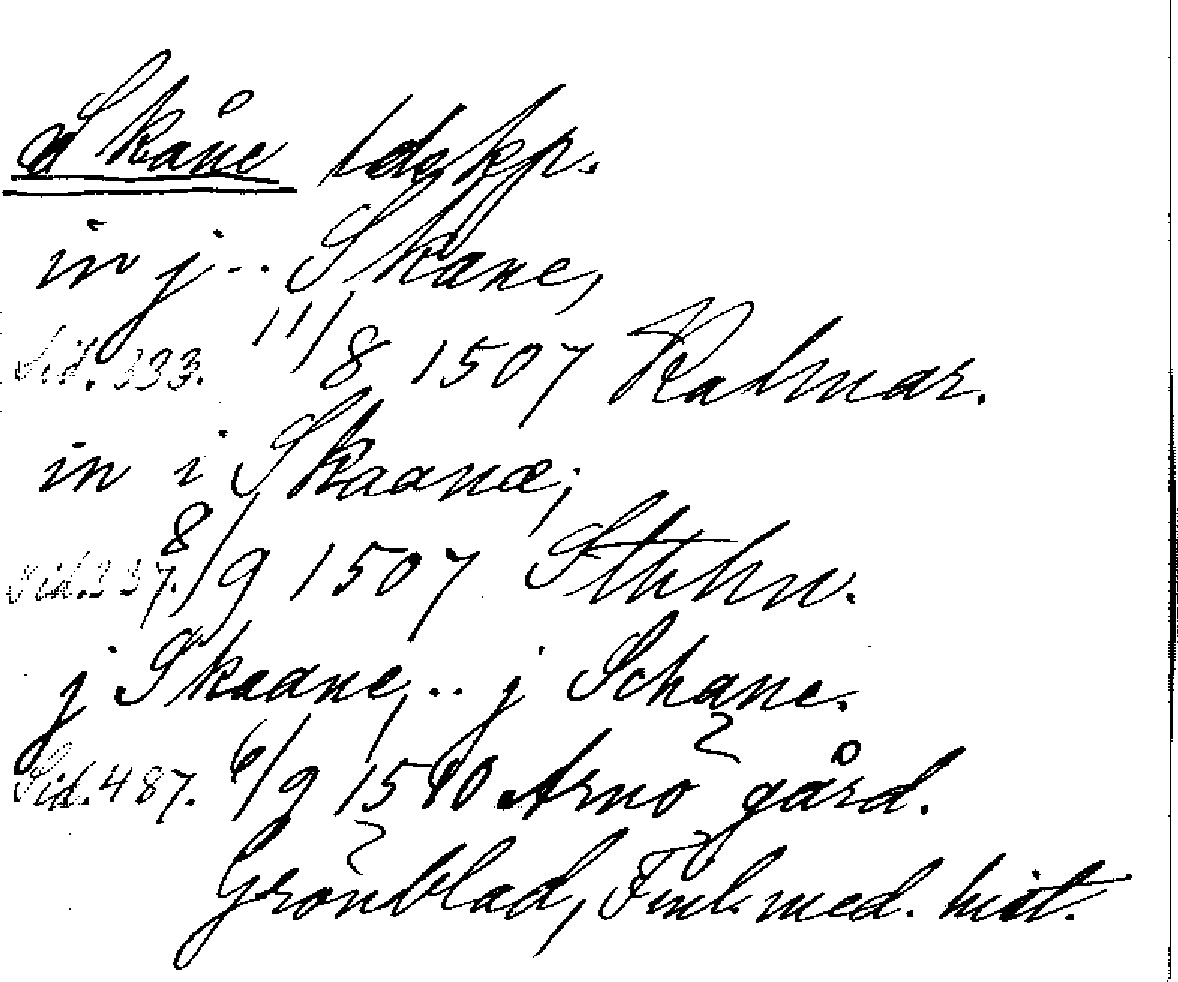 Skåne ldskp.
in j .. Skane,
Sid. 333. 11/8 1507 Kalmar.
in i Skaanæ;
Sid. 337. 8/9 1507 Sthlm.
j Skaane, .. j Schane.
Sid. 487. 6/9 1510 Arnö gård.
Grönblad, Finl. med. hist.